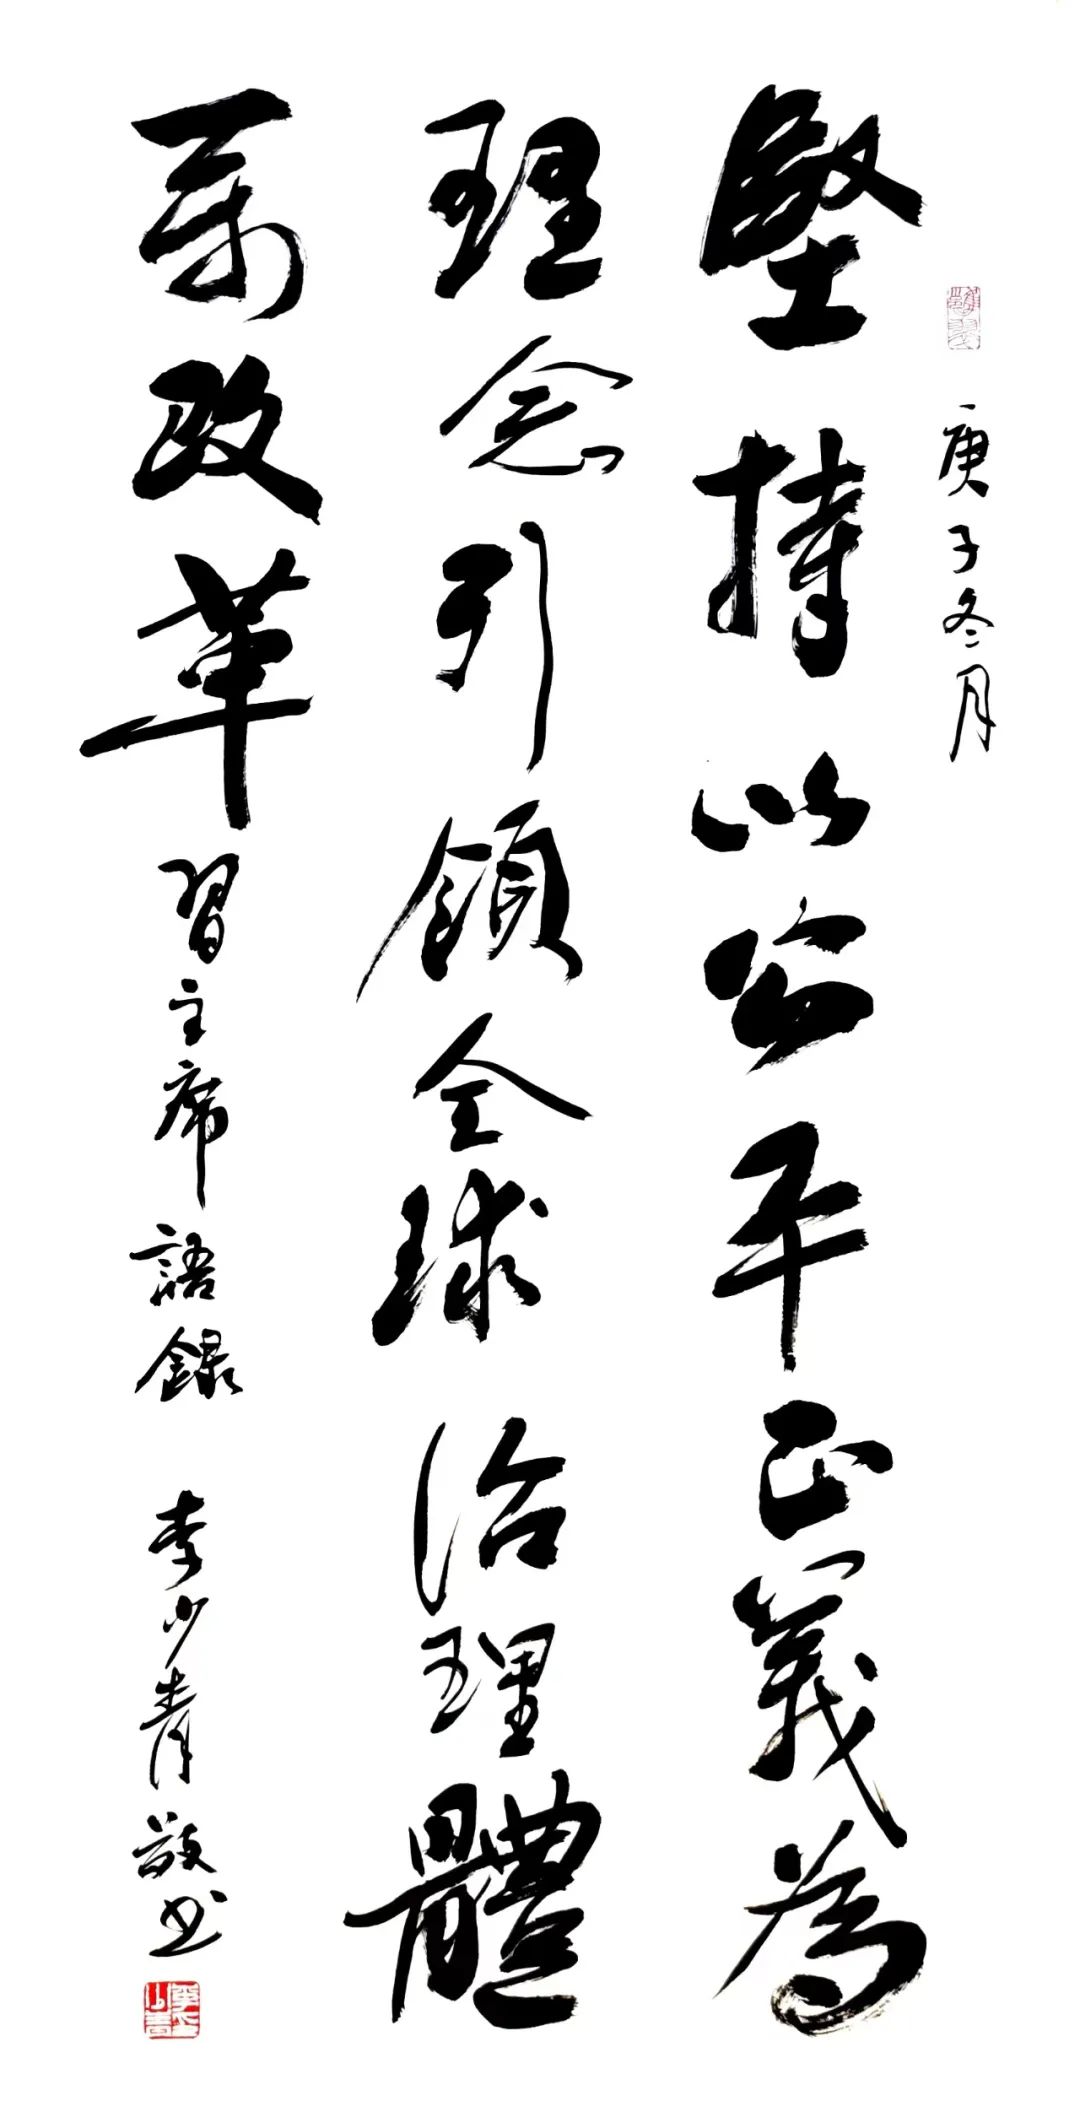 庚子冬月
堅持以公平正義為
理念引領全球治理體
系改革 習主席語錄 李少青敬书